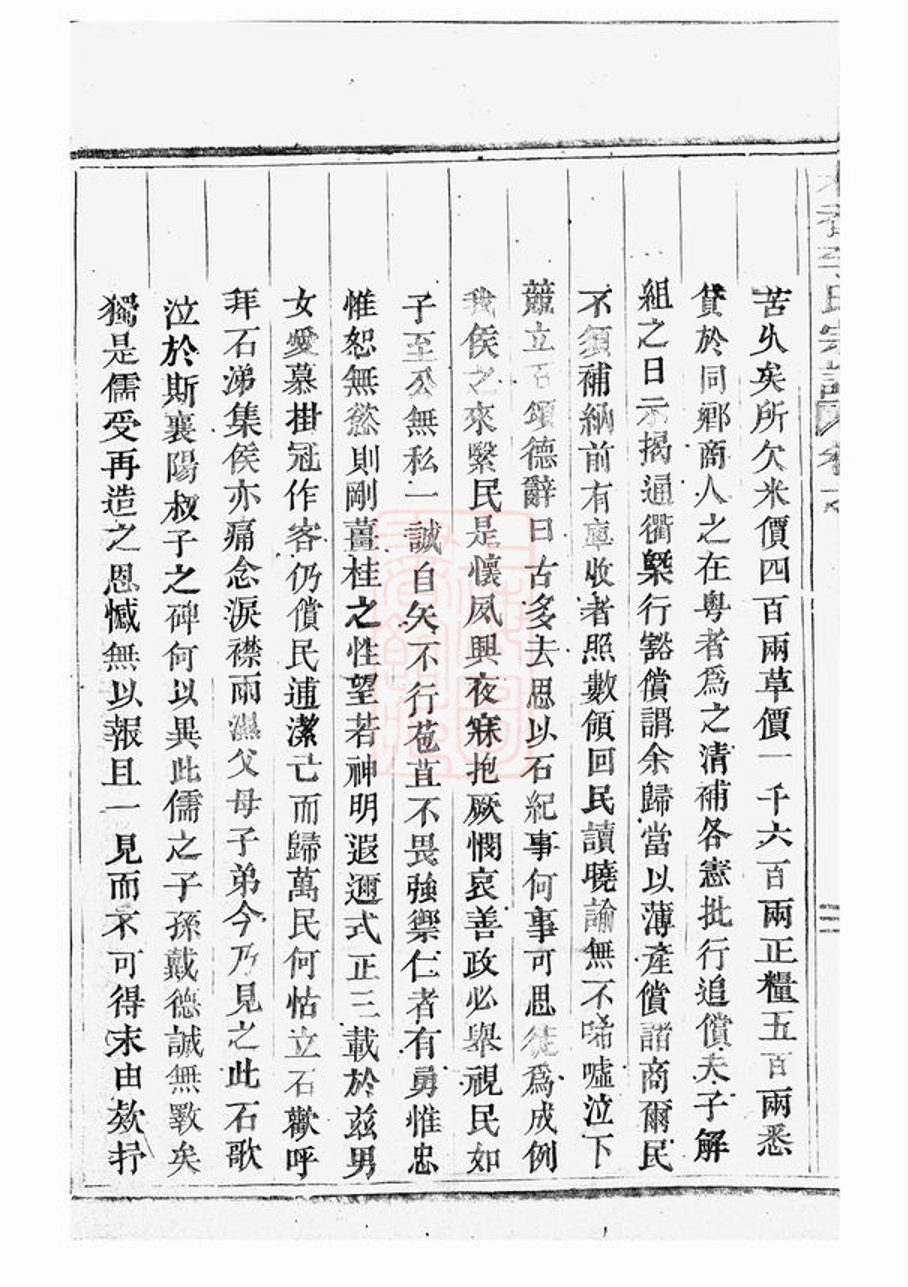 苦久矣所欠米價四百兩草價一千六百兩正糧五百兩悉
貸於同鄕商人之在粵者爲之清補各憲批行追償夫子解
組之日示揭通衢槩行豁償謂余歸當以薄產償諸商爾民
不須補納前有車收者照數領回民讀曉諭無不唏噓泣下
競立石頌德辭曰古多去思以石紀事何事可思徒爲成例
我侯之來繄民是懷夙興夜寐抱厥憫哀善政必舉視民如
子至公無私一誠自矢不行苞苴不畏強禦仁者有勇惟忠
惟恕無慾則剛薑桂之性望若神明遐邇式正三載於兹男
女愛慕掛冠作客仍償民逋潔己而歸萬民何怙立石歡呼
拜石涕集侯亦痛念淚襟雨濕父母子弟今乃見之此石歌
泣於斯襄陽叔子之碑何以異此儒之子孫戴德誠無斁矣
獨是儒受再造之恩慽無以報且一見而不可得末由欬抒
李氏宗譜